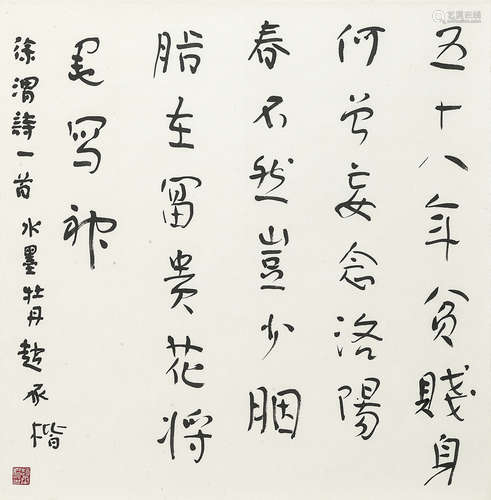 五十八年貧賤身
何曾妄念洛陽
春不然豈少胭
脂在富貴花將
墨寫神
徐渭詩一首 水墨牡丹 趙承楷